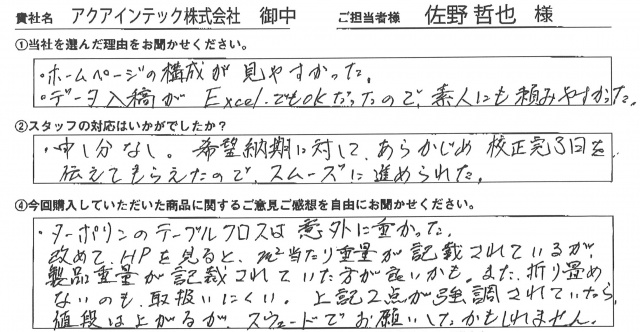 貴社名 アクアインテック株式会社 御中 ご担当者様 佐野 哲也 様
①当社を選んだ理由をお聞かせください。
・ホームページの構成が見やすかった。
・データ入稿がExcelでもOKだったので、素人にも頼みやすかった。
②スタッフの対応はいかがでしたか？
・申し分なし。希望納期に対して、あらかじめ校正完了日を
伝えてもらえたので、スムーズに進められた。
④今回購入していただいた商品に関するご意見ご感想を自由にお聞かせください。
・ターポリンのテーブルクロスは意外に重かった。
改めて、HPを見ると、m²当たり重量が記載されているが、
製品重量が記載されていた方が良いかも。また、折り畳め
ないのも、取扱いにくい。上記2点が強調されていたら、
値段は上がるが、スウェードでお願いしたかもしれません。